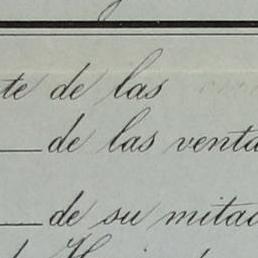 te de las
de las venta
de su mitad